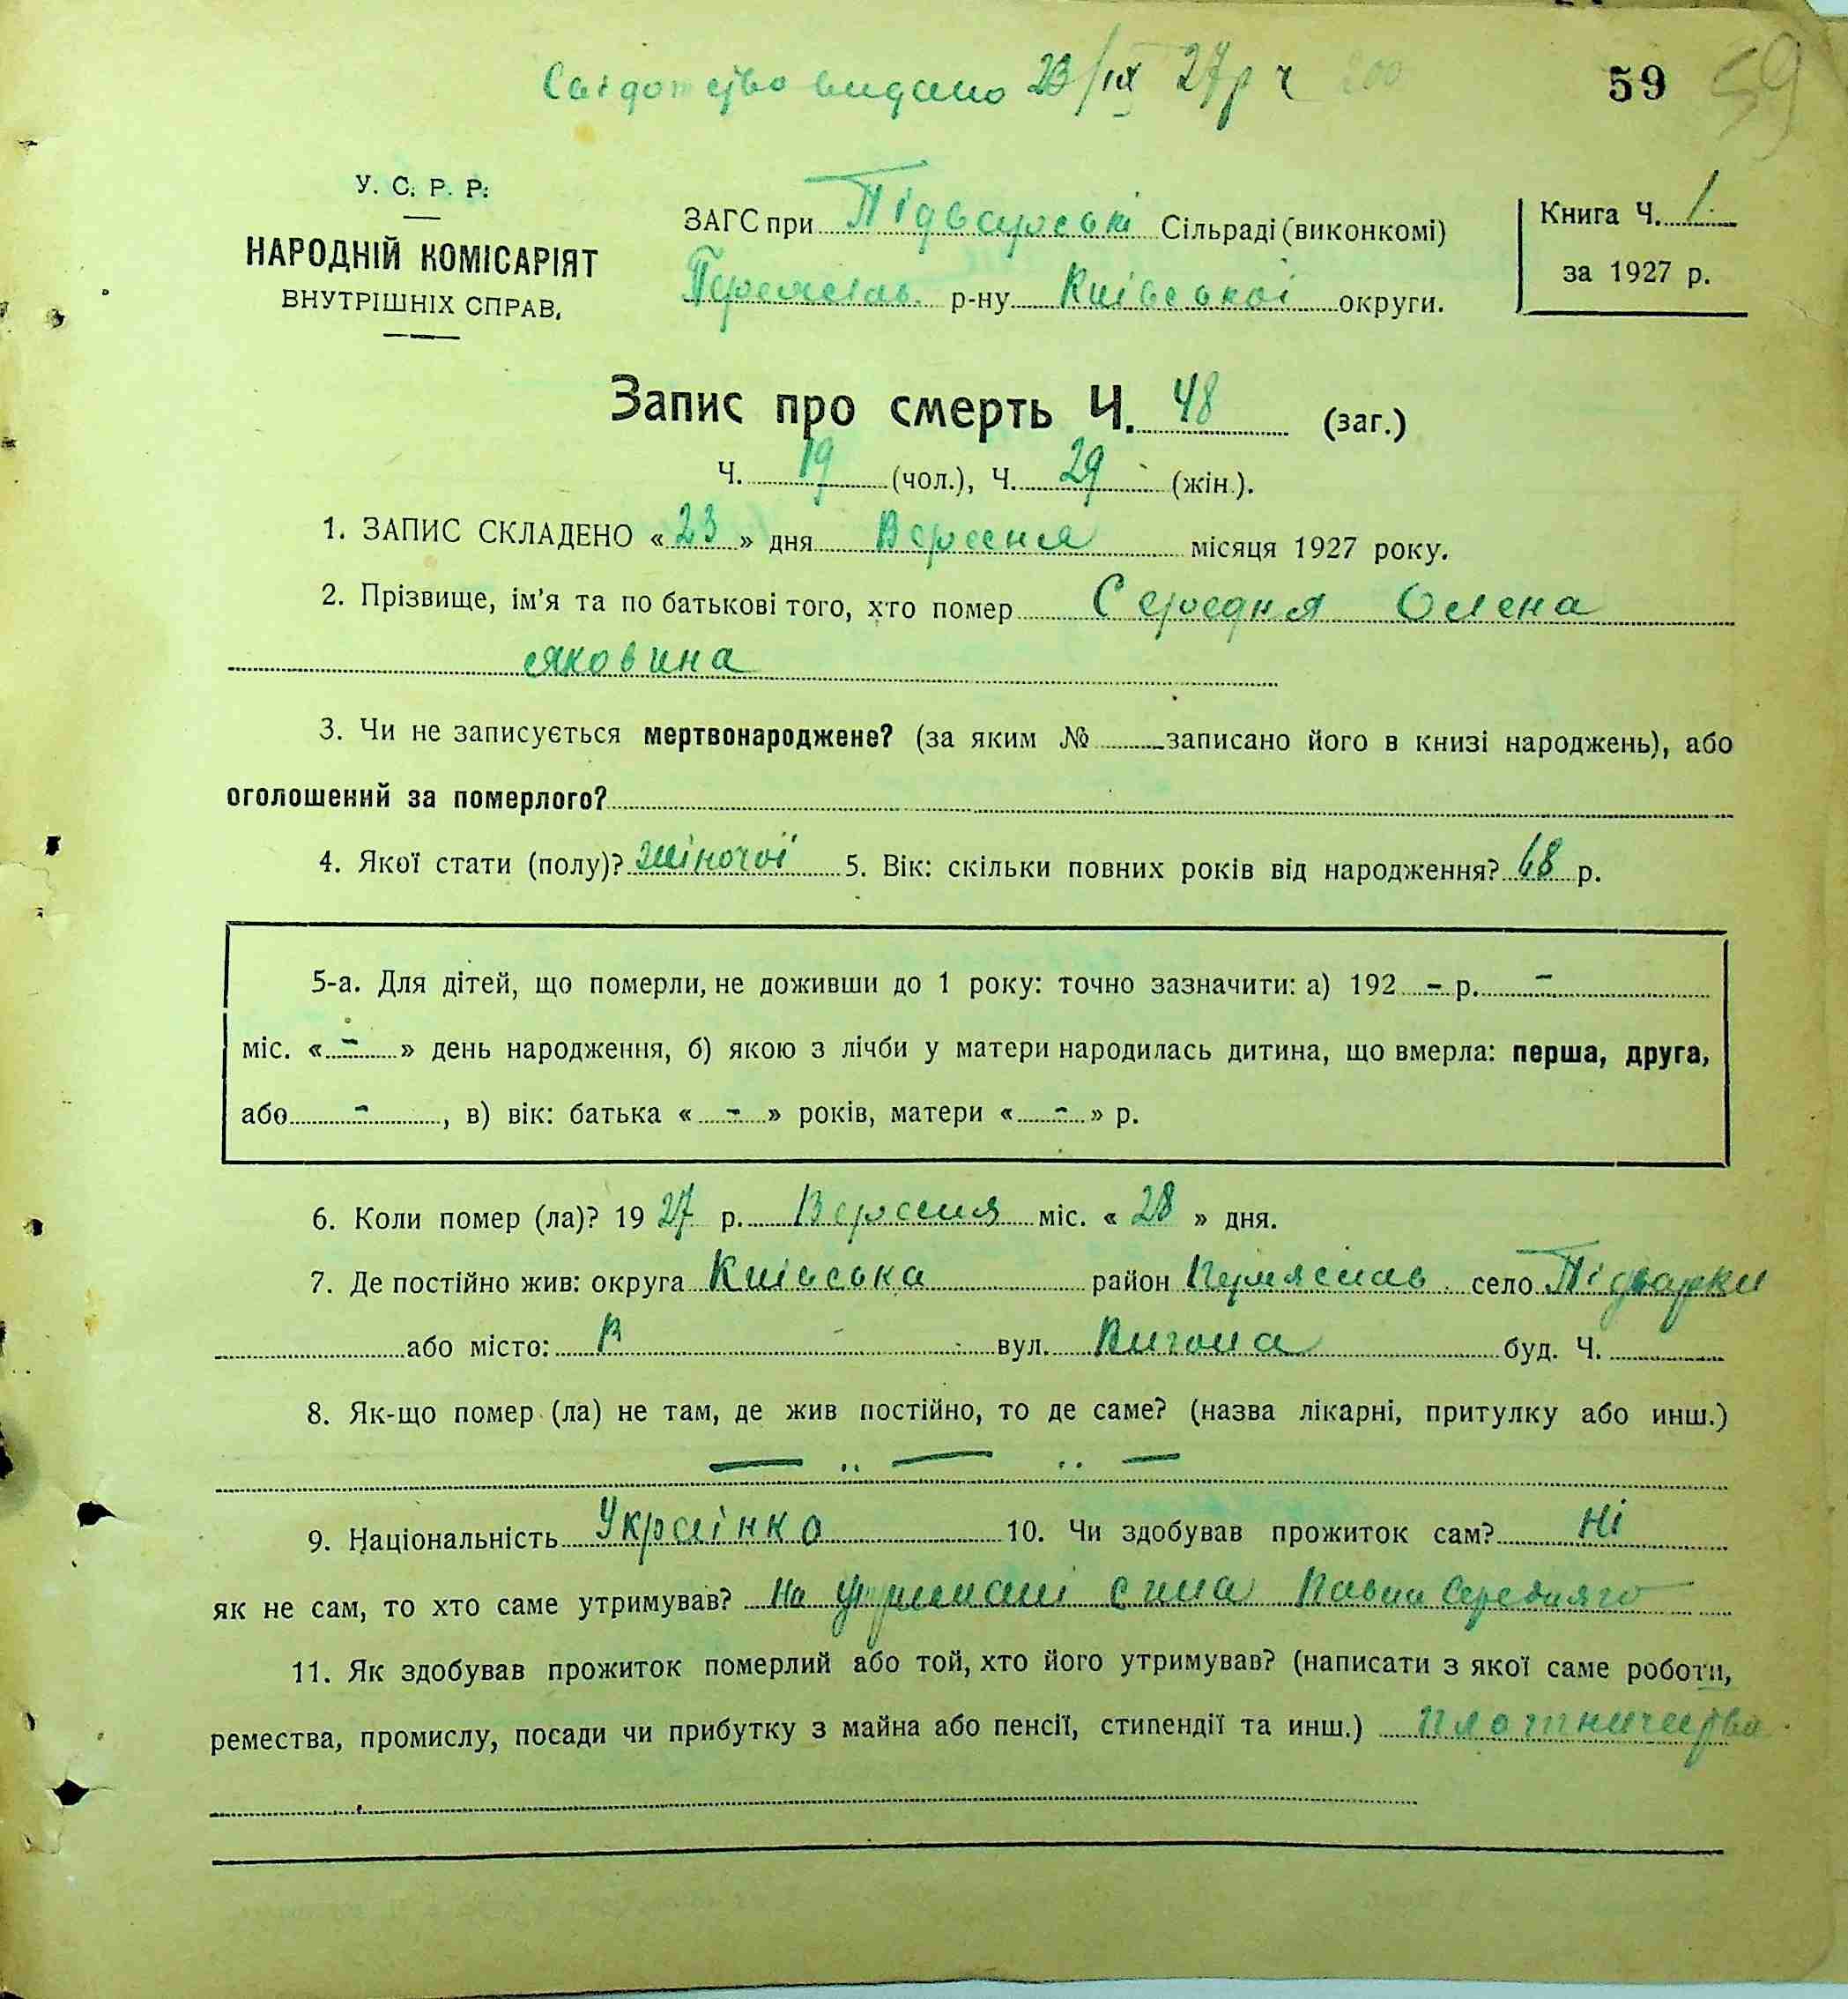 Свідоцтво видано 23/IX 27 р ч 200
59 59
У. С. Р. Р.
НАРОДНІЙ КОМІСАРІЯТ
ВНУТРІШНІХ СПРАВ.
ЗАГС при Підварські Сільраді (виконкомі)
Переяслав. р-ну Київської округи.
Книга Ч. 1.
за 1927 р.
Запис про смерть Ч. 48 (заг.)
Ч. 19 (чол.), Ч. 29 (жін.).
1. ЗАПИС СКЛАДЕНО «23» дня Вересня місяця 1927 року.
2. Прізвище, ім'я та по батькові того, хто помер Середня Олена
яковина
3. Чи не записується мертвонароджене? (за яким № записано його в книзі народжень), або
оголошений за померлого?
4. Якої стати (полу)? жіночої 5. Вік: скільки повних років від народження? 68 р.
5-а. Для дітей, що померли, не доживши до 1 року: точно зазначити: а) 192 - р. -
міс. « - » день народження, б) якою з лічби у матери народилась дитина, що вмерла: перша, друга,
або - , в) вік: батька « - » років, матери « - » р.
6. Коли помер (ла)? 19 27 р. Вересня міс. « 28 » дня.
7. Де постійно жив: округа Київська район Переяслав село Підварки
або місто: В вул. Вигона буд. Ч.
8. Як-що помер (ла) не там, де жив постійно, то де саме? (назва лікарні, притулку або инш.)
— „ — „ —
9. Національність Українка 10. Чи здобував прожиток сам? Ні
як не сам, то хто саме утримував? На утримані сина Павла Середняго
11. Як здобував прожиток померлий або той, хто його утримував? (написати з якої саме роботи,
ремества, промислу, посади чи прибутку з майна або пенсії, стипендії та инш.) плотничества